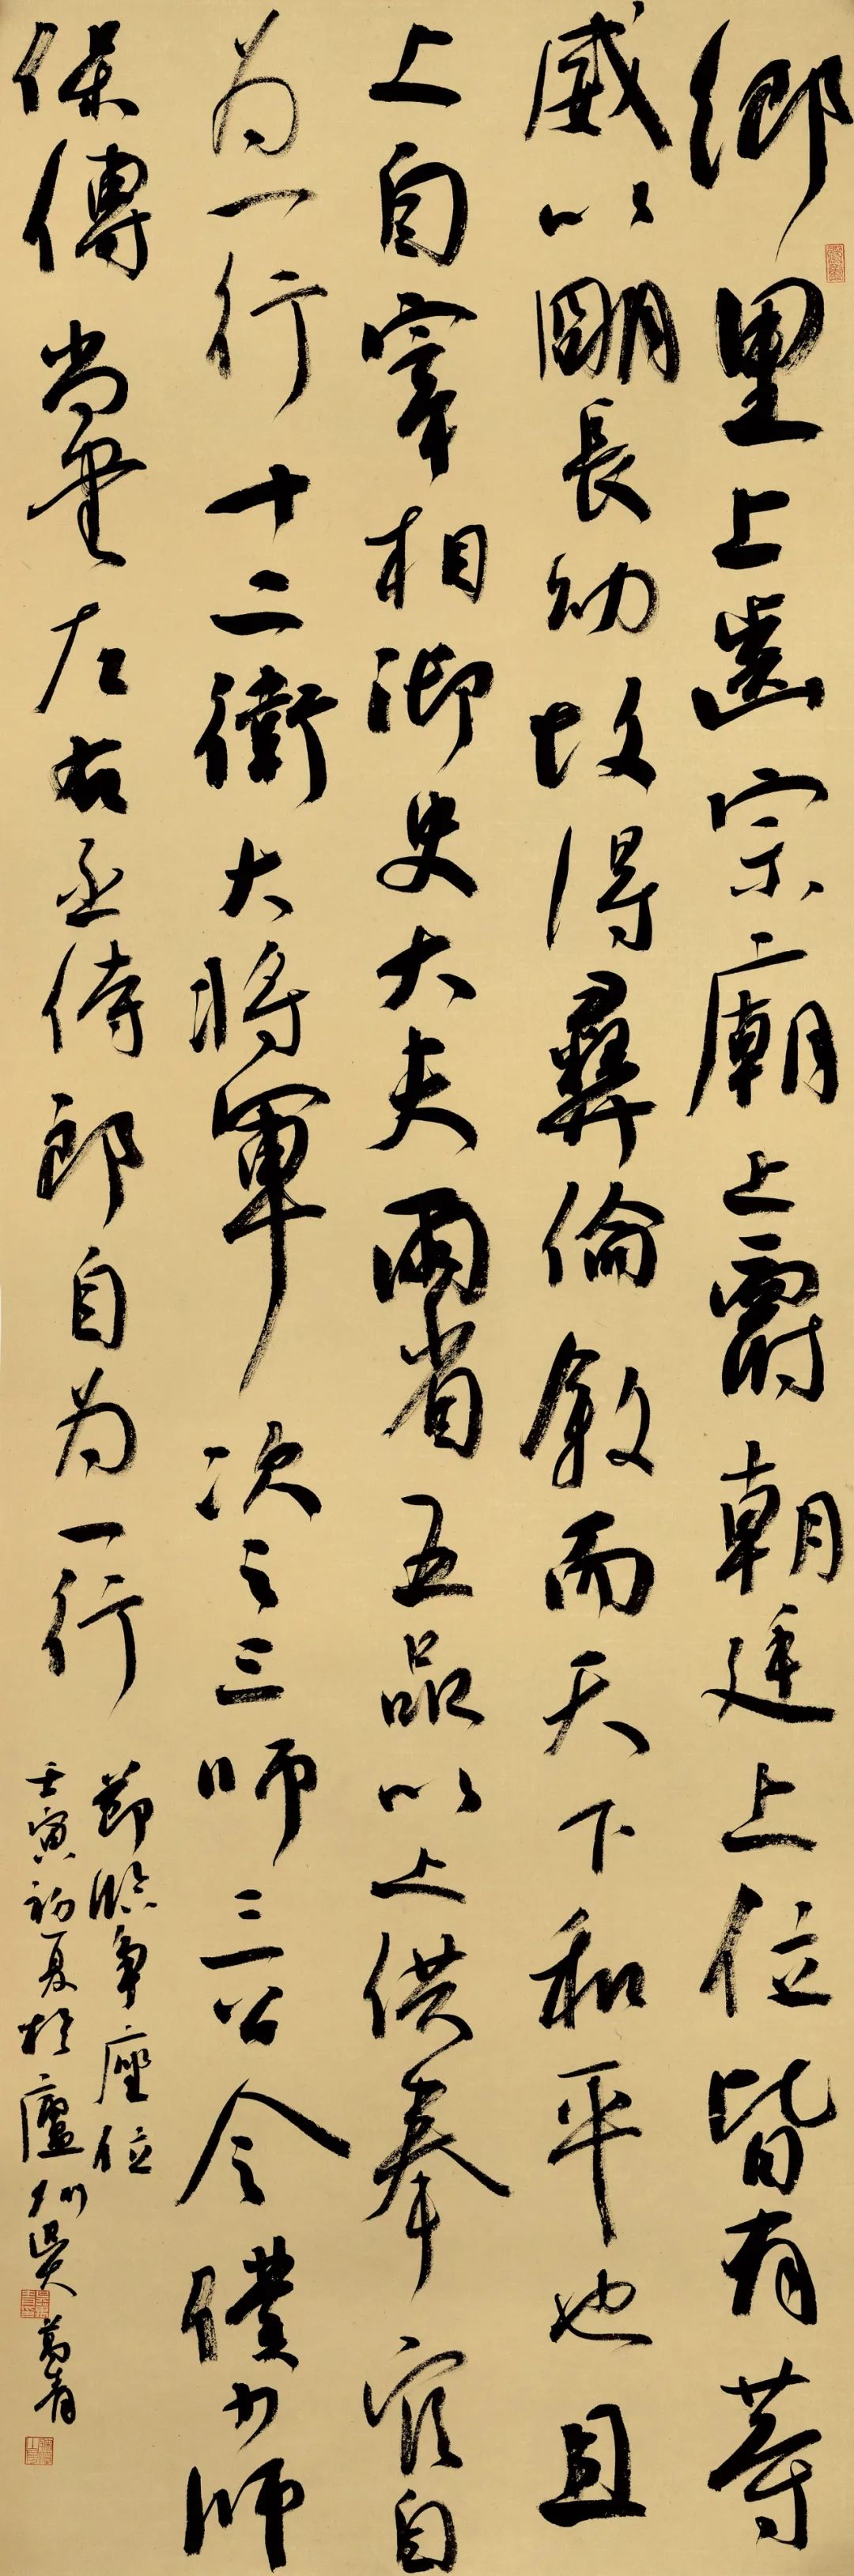 鄉里上齒宗廟上爵朝廷上位皆有等
威以明長幼故得彝倫敘而天下和平也且
上自宰相御史大夫兩省五品以上供奉官自
為一行十二衛大將軍次之三師三公令僕少師
保傅尚書左右丞侍郎自為一行
節臨爭座位
壬寅初夏於廬州吳 青